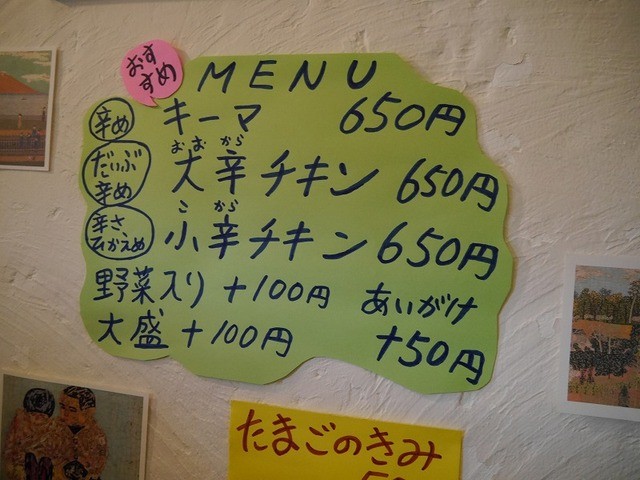 おす
すめ
MENU
辛め キーマ 650円
おお から
だいぶ
辛め
大辛チキン 650円
こ から
辛さ
ひかえめ
小辛チキン 650円
野菜入り +100円 あいがけ
大盛 +100円 +50円
たまごのきみ